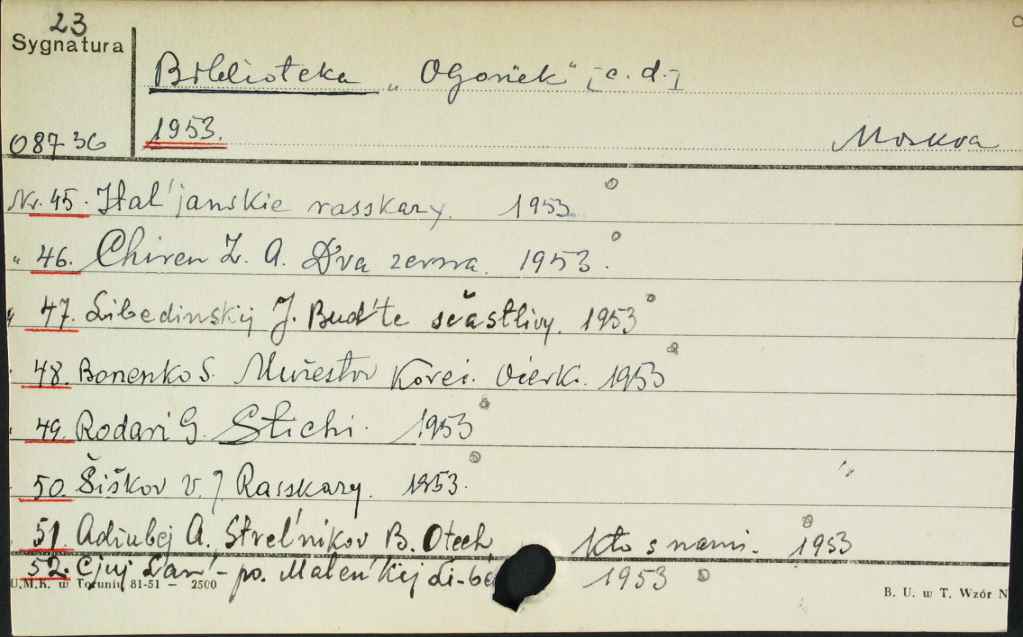 23
Sygnatura
Biblioteka „Ogoniek" [c. d.]
087 36
1953.
Moskva
Nr. 45. Ital'janskie rasskazy. 1953
" 46. Chiren Z. A. Dva zerna. 1953.
" 47. Libedinskij J. Bud'te sčastlivy. 1953
48. Borzenko S. Mužestvo Korei. Očerk. 1953
49. Rodari G. Stichi. 1953
50. Šiškov V. J. Rasskazy. 1953.
51. Adžubej A. Strel'nikov B. Otech kto s nami. 1953
52. Cjuj Džan'-po. Malen'kij Li-bé 1953
U.M.K. w Toruniu 81-51 — 2500
B. U. w T. Wzór N